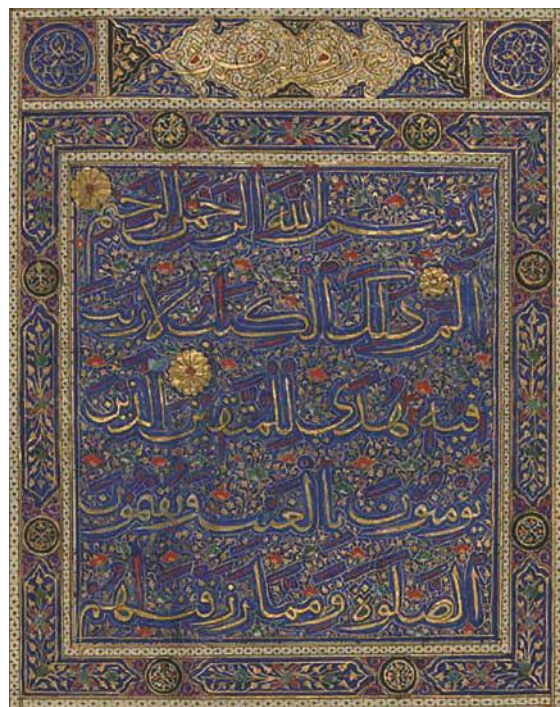 بسم الله الرحمن الرحيم
الم ذلك الكتاب لا ريب
فيه هدى للمتقين الذين
يؤمنون بالغيب ويقيمون
الصلوة ومما رزقنهم